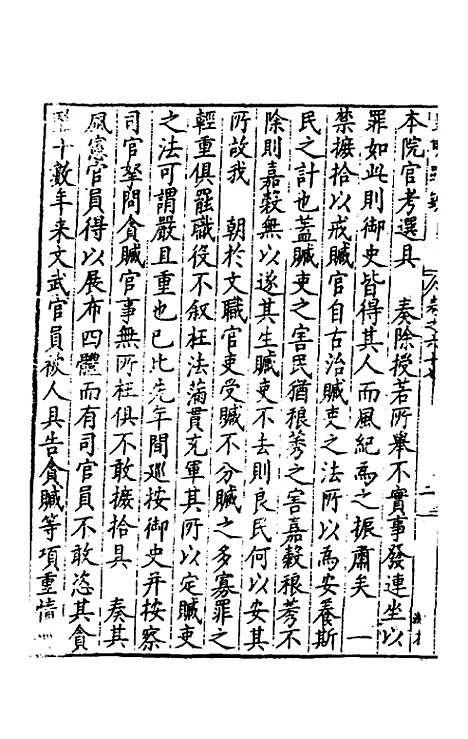 本院官考選具　奏除授若所舉不實事發連坐以
罪如此則御史皆得其人而風紀為之振肅矣　一
禁摭拾以戒贓官自古治贓吏之法所以為安養斯
民之計也蓋贓吏之害民猶稂莠之害嘉穀稂莠不
除則嘉穀無以遂其生贓吏不去則良民何以安其
所故我　朝於文職官吏受贓不分贓之多寡罪之
輕重俱罷職役不叙枉法滿貫充軍其所以定贓吏
之法可謂嚴且重也已比先年間巡按御史并按察
司官拏問貪贓官事無所枉俱不敢摭拾具　奏其
風憲官員得以展布四體而有司官員不敢恣其貪
十數年来文武官員被人具告貪贓等項重情